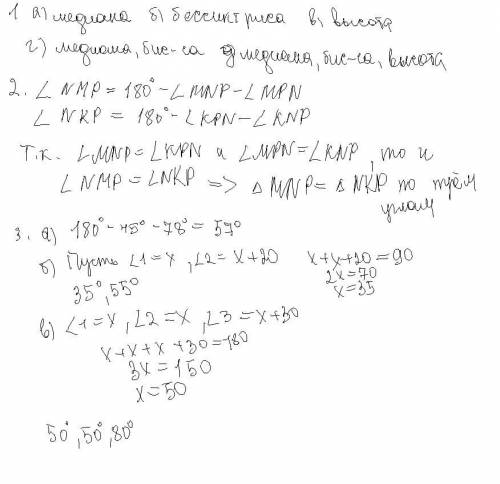 1 а) медиана б) бессиктриса в) высота
г) медиана, бис-са д) медиана, бис-са, высота
2. ∠ NMP = 180° - ∠ MNP - ∠ MPN
∠ NKP = 180° - ∠ KPN - ∠ KNP
Т.к. ∠MNP = ∠KPN и ∠MPN = ∠KNP, то и
∠ NMP = ∠NKP => △ MNP = △ NKP по трём
углам
3. а) 180° - 45° - 78° = 57°
б) Пусть ∠1 = x, ∠2 = x + 20 x + x + 20 = 90
2x = 70
35°, 55° x = 35
в) ∠1 = x, ∠2 = x, ∠3 = x + 30
x + x + x + 30 = 180
3x = 150
x = 50
50°, 50°, 80°